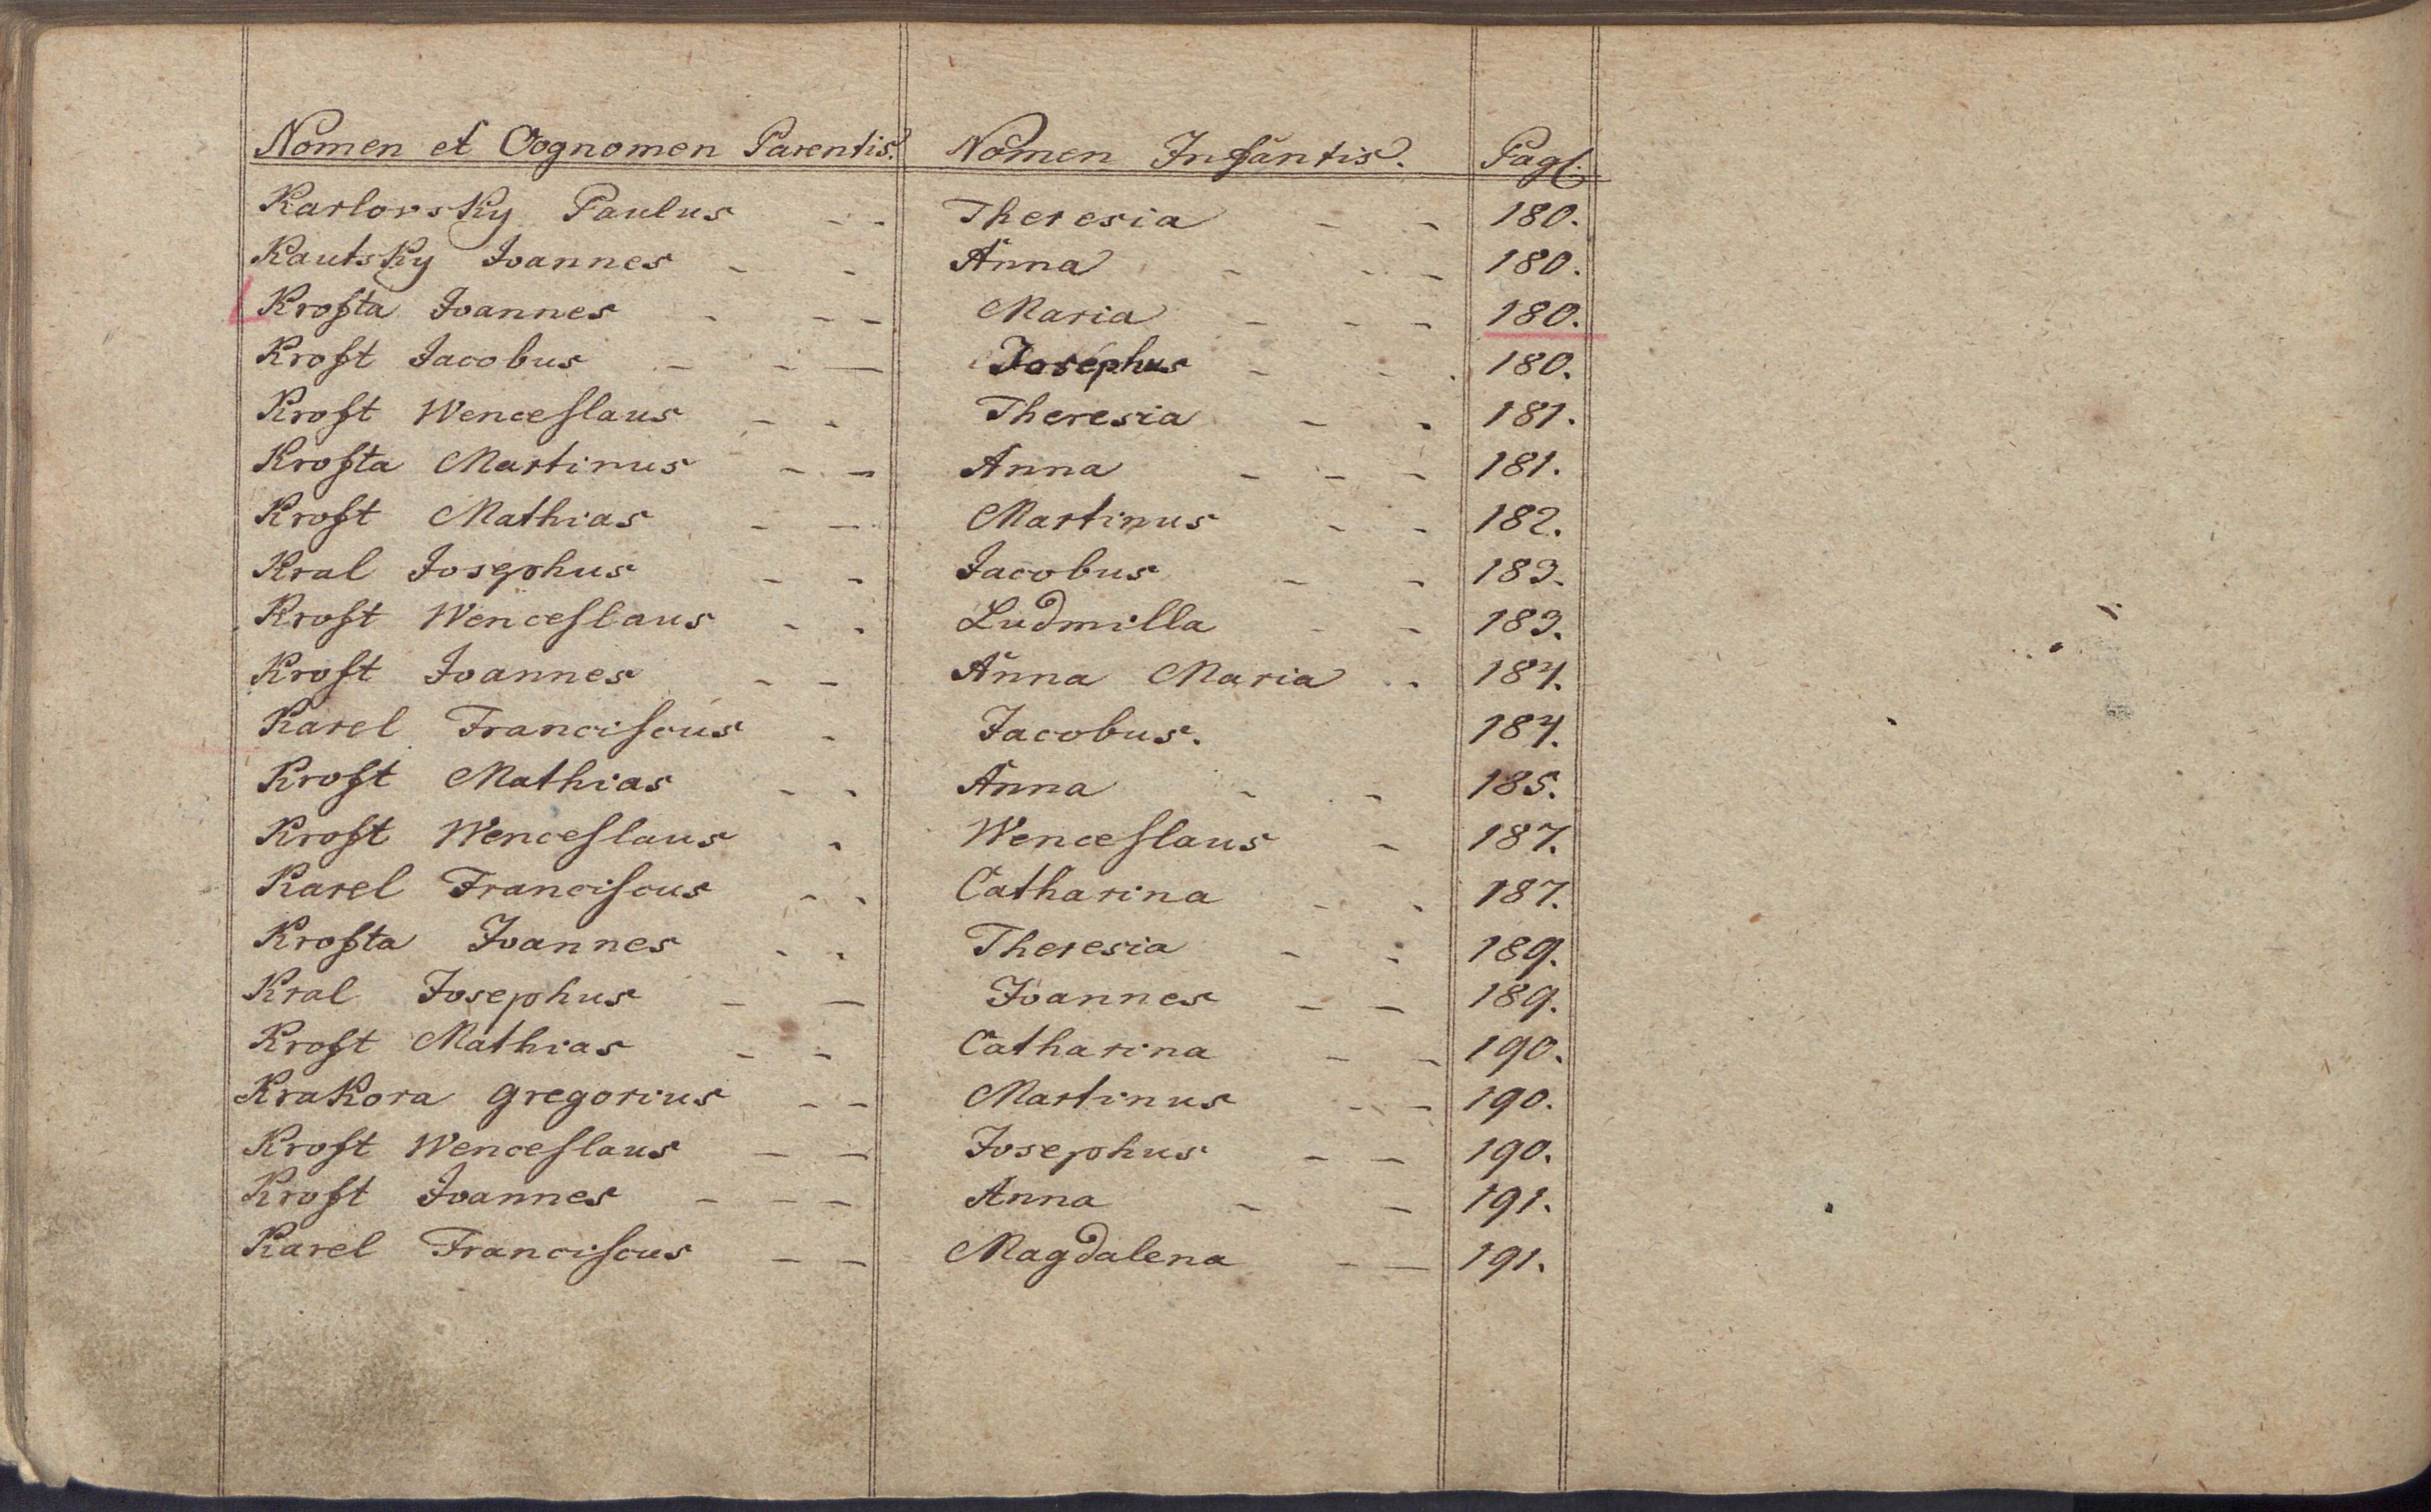 Nomen et Cognomen Parentis. Nomen Infantis. Pagl:
Karlovsky Paulus - - Theresia - - 180.
Kautsky Joannes - - Anna - - - 180.
Kroſta Joannes - - - Maria - - - 180.
Kroſt Jacobus - - - Josephus - - - 180.
Kroſt Wenceſlaus - - Theresia - - 181.
Kroſta Martinus - - Anna - - - 181.
Kroſt Mathias - - Martinus - - 182.
Kral Josephus - - Jacobus - - 183.
Kroſt Wenceſlaus - - Ludmilla - - 183.
Kroſt Joannes - - Anna Maria - - 184.
Karel Franciſcus - Jacobus. 184.
Kroſt Mathias - - Anna - - 185.
Kroſt Wenceſlaus - Wenceſlaus - 187.
Karel Franciſcus - - Catharina - - 187.
Kroſta Joannes - - Theresia - - 189.
Kral Josephus - - Joannes - - 189.
Kroſt Mathias - - Catharina - - 190.
Krakora Gregorius - - Martinus - - 190.
Kroſt Wenceſlaus - - Josephus - - 190.
Kroſt Joannes - - - Anna - - 191.
Karel Franciſcus - - Magdalena - - 191.